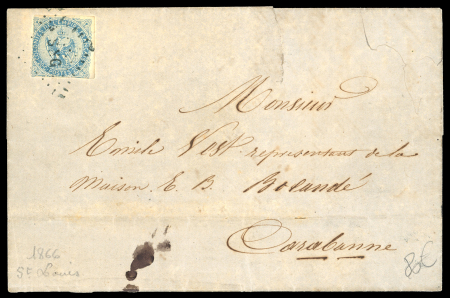 Monsieur
Emile Vest représentant de la
Maison E. B. Bosandé
Carabanne
1866
St Louis